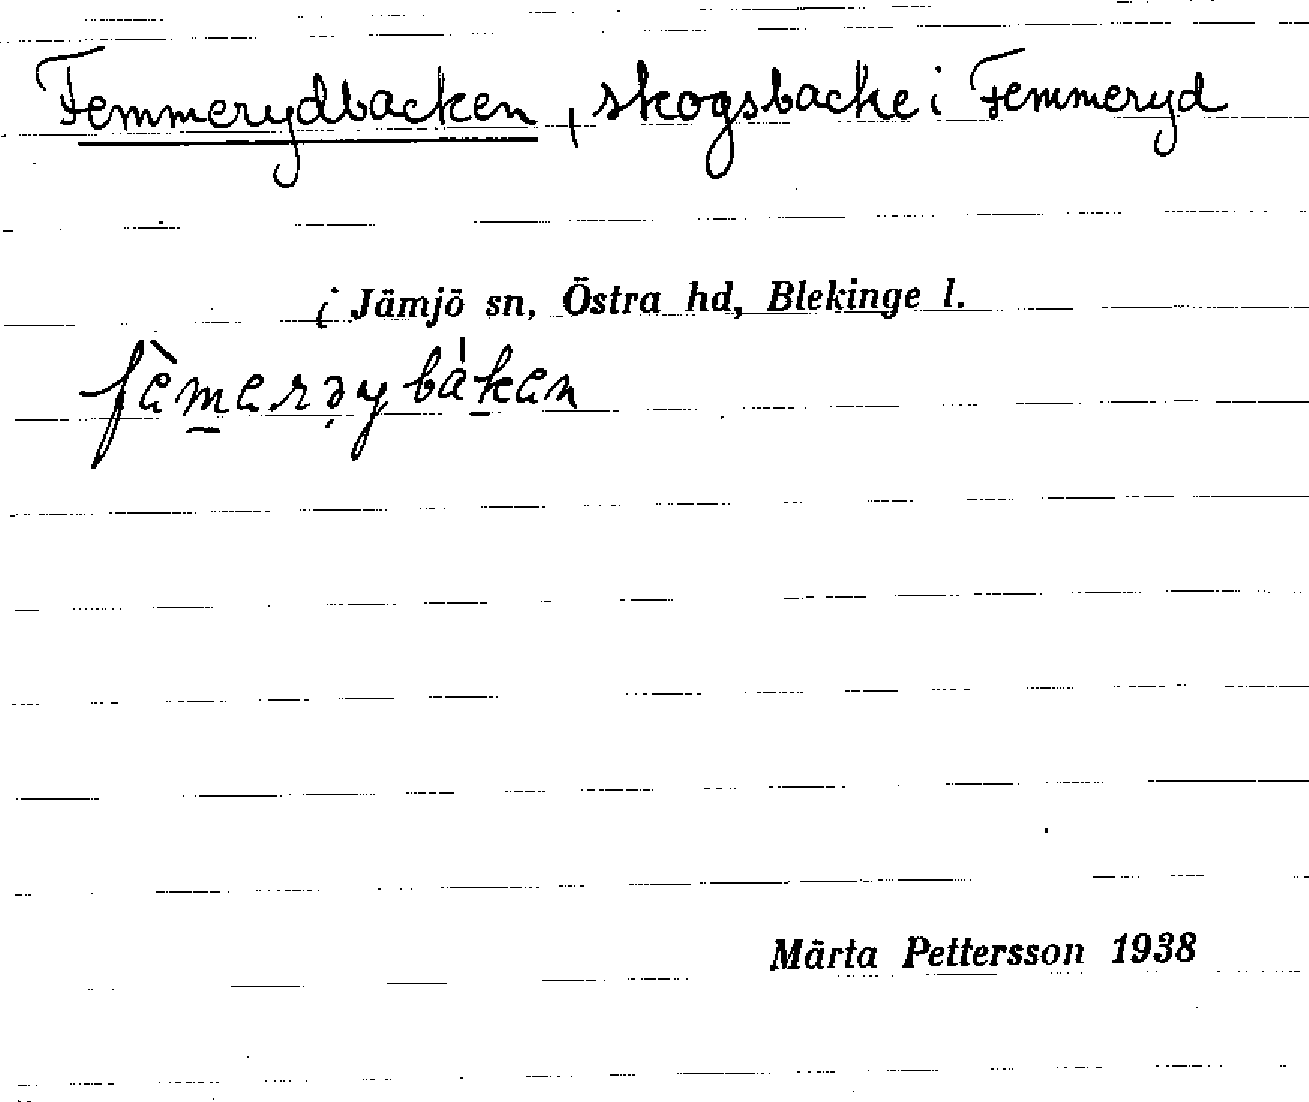 Femmerydbacken, skogsbacke i Femmeryd
i Jämjö sn, Östra hd, Blekinge l.
fèmerəybákən
Märta Pettersson 1938